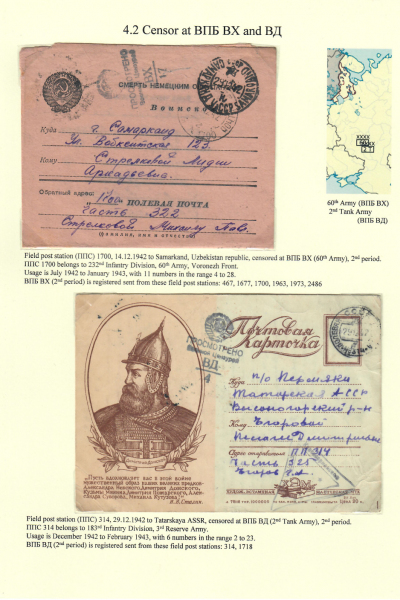 4.2 Censor at ВПБ ВХ and ВД
СМЕРТЬ НЕМЕЦКИМ
Воинское
ВХ
17
Куда г. Самарканд
Ул. Бебкентская 123
Кому Стрелковой Лидии
Аркадьевне.
Обратный адрес:
1700 ПОЛЕВАЯ ПОЧТА
Часть 322
Стрелковой Михаилу Пав.
(фамилия, имя и отчество)
XXXX
60th Army (ВПБ ВХ)
2nd Tank Army
(ВПБ ВД)
Field post station (ППС) 1700, 14.12.1942 to Samarkand, Uzbekistan republic, censored at ВПБ ВХ (60th Army), 2nd period.
ППС 1700 belongs to 232nd Infantry Division, 60th Army, Voronezh Front.
Usage is July 1942 to January 1943, with 11 numbers in the range 4 to 28.
ВПБ ВХ (2nd period) is registered sent from these field post stations: 467, 1677, 1700, 1963, 1973, 2486
Почтовая
Карточка
СССР
ПРОСМОТРЕНО
Военной Цензурой
ВД
4
Куда п/о Пермяки
Татарская АССР
Высокогорский р-н
Кому Егоровой
Пелагеи Дмитриевне
Адрес отправителя ПП 314
Часть 325
Егоров
„Пусть вдохновляет вас в этой войне
мужественный образ наших великих предков—
Александра Невского, Димитрия Донского,
Кузьмы Минина, Димитрия Пожарского, Алек-
сандра Суворова, Михаила Кутузова!“
И. В. Сталин.
Field post station (ППС) 314, 29.12.1942 to Tatarskaya ASSR, censored at ВПБ ВД (2nd Tank Army), 2nd period.
ППС 314 belongs to 183rd Infantry Division, 3rd Reserve Army.
Usage is December 1942 to February 1943, with 6 numbers in the range 2 to 23.
ВПБ ВД (2nd period) is registered sent from these field post stations: 314, 1718